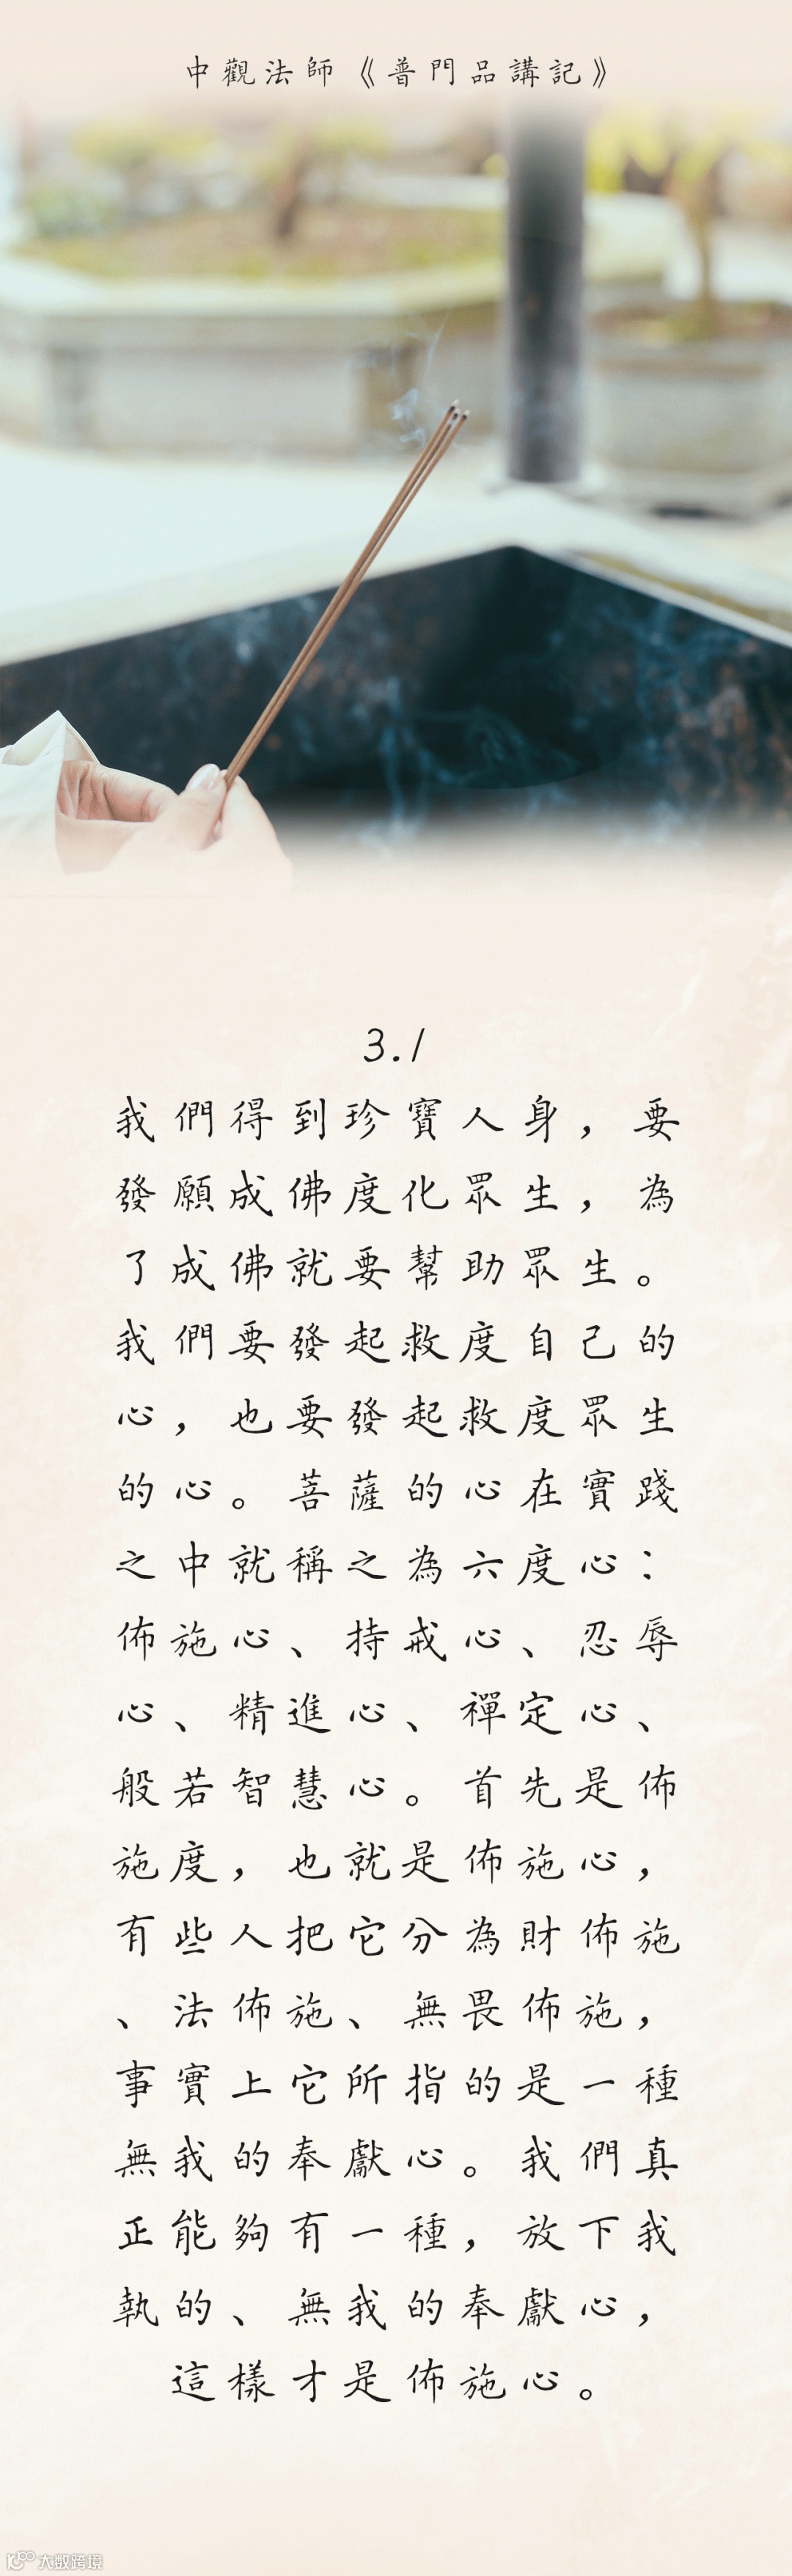 中觀法師《普門品講記》
3.1
我們得到珍寶人身，要
發願成佛度化眾生，為
了成佛就要幫助眾生。
我們要發起救度自己的
心，也要發起救度眾生
的心。菩薩的心在實踐
之中就稱之為六度心：
佈施心、持戒心、忍辱
心、精進心、禪定心、
般若智慧心。首先是佈
施度，也就是佈施心，
有些人把它分為財佈施
、法佈施、無畏佈施，
事實上它所指的是一種
無我的奉獻心。我們真
正能夠有一種，放下我
執的、無我的奉獻心，
這樣才是佈施心。
大数跨境